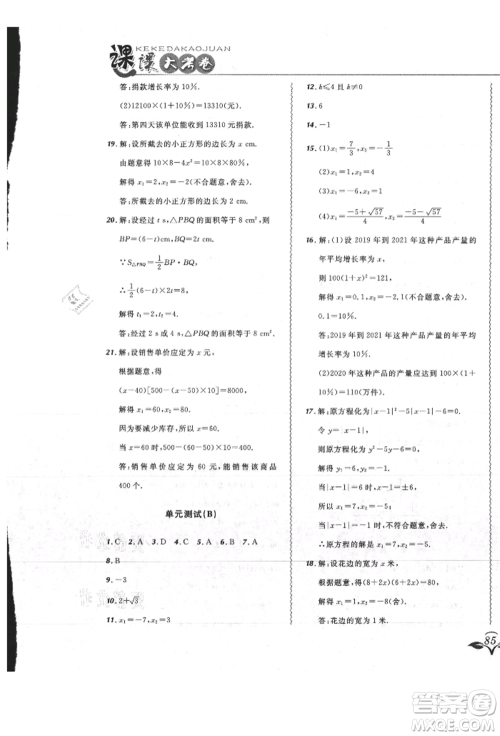 课课大考卷
KEKEDAKAOJUAN
答：捐款增长率为 10%.
(2)12100×(1+10%)=13310(元).
答：第四天该单位能收到 13310 元捐款.
19. 解：设所截去的小正方形的边长为 x cm.
由题意得，10×8-4x²=10×8×80%.
解得 x₁=2，x₂=-2(不合题意，舍去).
答：所截去的小正方形的边长为 2 cm.
20. 解：设经过 t s，△PBQ 的面积等于 8 cm²，则
BP=(6-t)cm，BQ=2t cm.
∵S△PBQ=1/2 BP·BQ，
∴1/2(6-t)×2t=8.
解得 t₁=2，t₂=4.
答：经过 2 s 或 4 s，△PBQ 的面积等于 8 cm².
21. 解：设销售单价应定为 x 元，
根据题意，得
(x-40)[500-10(x-50)]=8000，
解得 x₁=60，x₂=80，
因为要减少库存，所以取 x=60，
当 x=60 时，500-10×(60-50)=400.
答：销售单价应定为 60 元，能销售该商品
400 个.
单元测试(B)
1. C 2. A 3. D 4. A 5. C 6. B 7. A
8. B
9. -3
10. 2+√3
11. x₁=-7，x₂=3
12. k≤4 且 k≠0
13. 6
14. -1
15. (1)x₁=7/3，x₂=-1/3
(2)x₁=3，x₂=1
(3)x₁=-6，x₂=1
(4)x₁=(-5+√57)/4，x₂=(-5-√57)/4
16. 解：(1)设 2019 年到 2021 年这种产品产量的
年平均增长率为 x，
则 100(1+x)²=121，
解得 x₁=0.1，x₂=-2.1(不合题意，舍去).
0.1=10%.
答：2019 年到 2021 年这种产品产量的年平均
增长率为 10%.
(2)2020 年这种产品的产量应达到 100×(1+10%)
=110(万件).
17. 解：原方程化为|x-1|²-5|x-1|-6=0.
令 y=|x-1|，
则原方程化为 y²-5y-6=0.
解得 y₁=6，y₂=-1.
当|x-1|=6时，x-1=±6，解得 x₁=7，x₂=-5；
当|x-1|=-1时(舍去).
则原方程的解是 x₁=7，x₂=-5.
18. 解：设花边的宽为 x 米，
根据题意，得(8+2x)(6+2x)=80，
解得 x₁=1，x₂=-8(舍去).
答：花边的宽为 1 米.
85